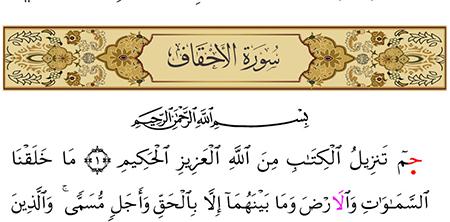 سُورَةُ الاحْقَافِ
بِسْمِ اللَّهِ الرَّحْمَٰنِ الرَّحِيمِ
حمٓ تَنزِيلُ الْكِتَٰبِ مِنَ اللَّهِ الْعَزِيزِ الْحَكِيمِ ﴿١﴾ مَا خَلَقْنَا
السَّمَٰوَٰتِ وَالَارْضَ وَمَا بَيْنَهُمَآ إِلَّا بِالْحَقِّ وَأَجَلٍ مُّسَمًّىۚ وَالَّذِينَ